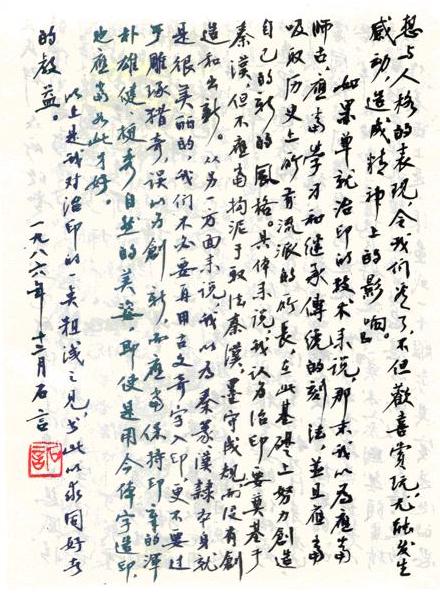 想与人格的表现令我们看了不但歡喜賞玩尤能发生
感动，造成精神上的影响』
如果单就治印的技术来说，那末我以为應當
师古。應當学习和继承傳統的刻法，並且應當
吸取历史上所有流派的所長，在此基礎上努力創造
自己的新的風格。具体来说，我认为治印要奠基于
秦漢，但不應當拘泥于取法秦漢，墨守成規，而没有創
造和出新。从另一方面来说，我以为秦篆漢隸本身就
是很美丽的，我们不必要再用古文奇字入印，更不要过
于雕琢猎奇误以为創新。而應當保持印章的渾
朴雄健，挺秀自然的美姿，即使是用今体字造印，
也應當如此才好。
以上是我对治印的一点粗浅之见，书此以求同好者
的教益。
一九八六年十二月石言
石言